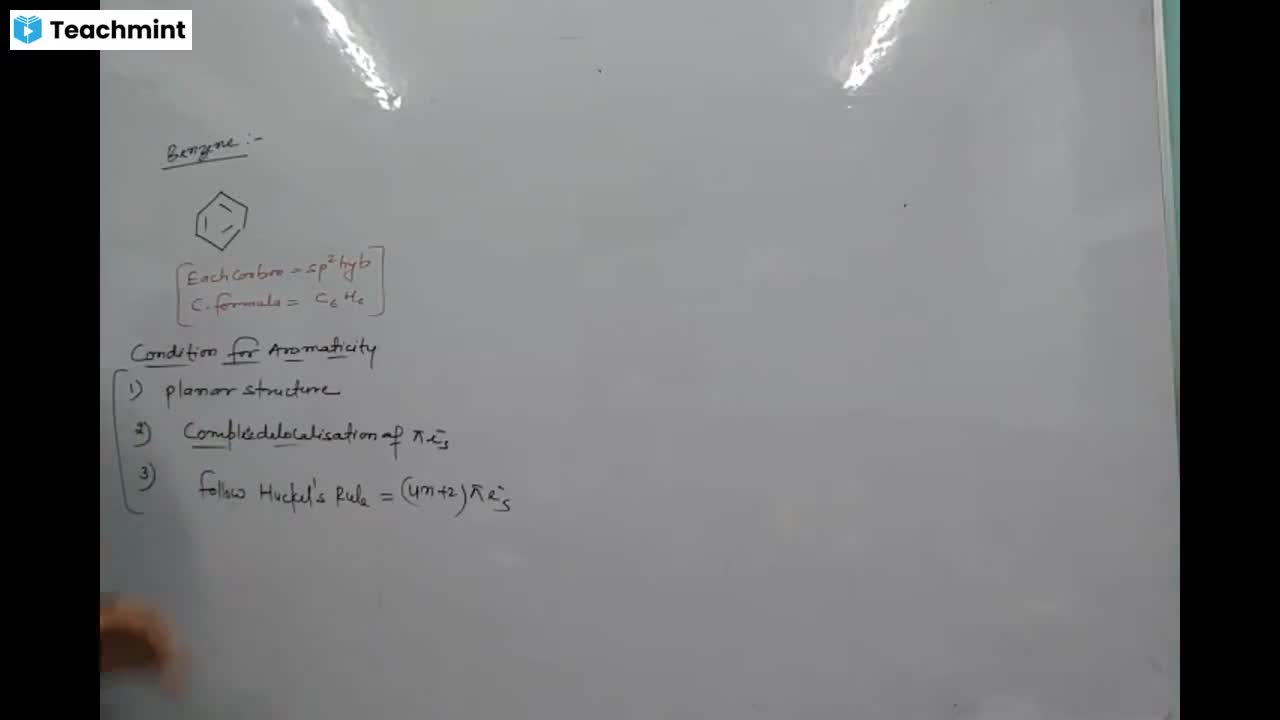 Teachmint
Benzene :-
[Each Carbon = sp² hyb
C. formula = C₆H₆]
Condition for Aromaticity
1) planar structure
2) Complete delocalisation of π e⁻s
3) follow Huckel's Rule = (4n+2) π e⁻s